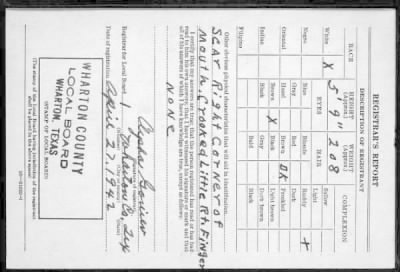 REGISTRAR'S REPORT
DESCRIPTION OF REGISTRANT
RACE
HEIGHT
(Approx.)
WEIGHT
(Approx.)
COMPLEXION
White X
5' 9"
208
Sallow
Light
EYES
HAIR
Ruddy X
Negro
Blue
Blonde
Dark
Gray
Red
Freckled
Oriental
Hazel
Brown OK
Light brown
Brown X
Black
Dark brown
Indian
Black
Gray
Black
Filipino
Bald
Other obvious physical characteristics that will aid in identification
SCAR Right CORNER of
Mouth, Crooked Little Rt. Finger
I certify that my answers are true; that the person registered has read or has had
read to him his own answers; that I have witnessed his signature or mark and that
all of his answers of which I have knowledge are true, except as follows:
NONE
Registrar for Local Board 1 Wharton Co. Tex
Date of registration April 27, 1942
WHARTON COUNTY
LOCAL BOARD
WHARTON, TEXAS
(STAMP OF LOCAL BOARD)
(The stamp of the Local Board having jurisdiction of the registrant
shall be placed in the above space)